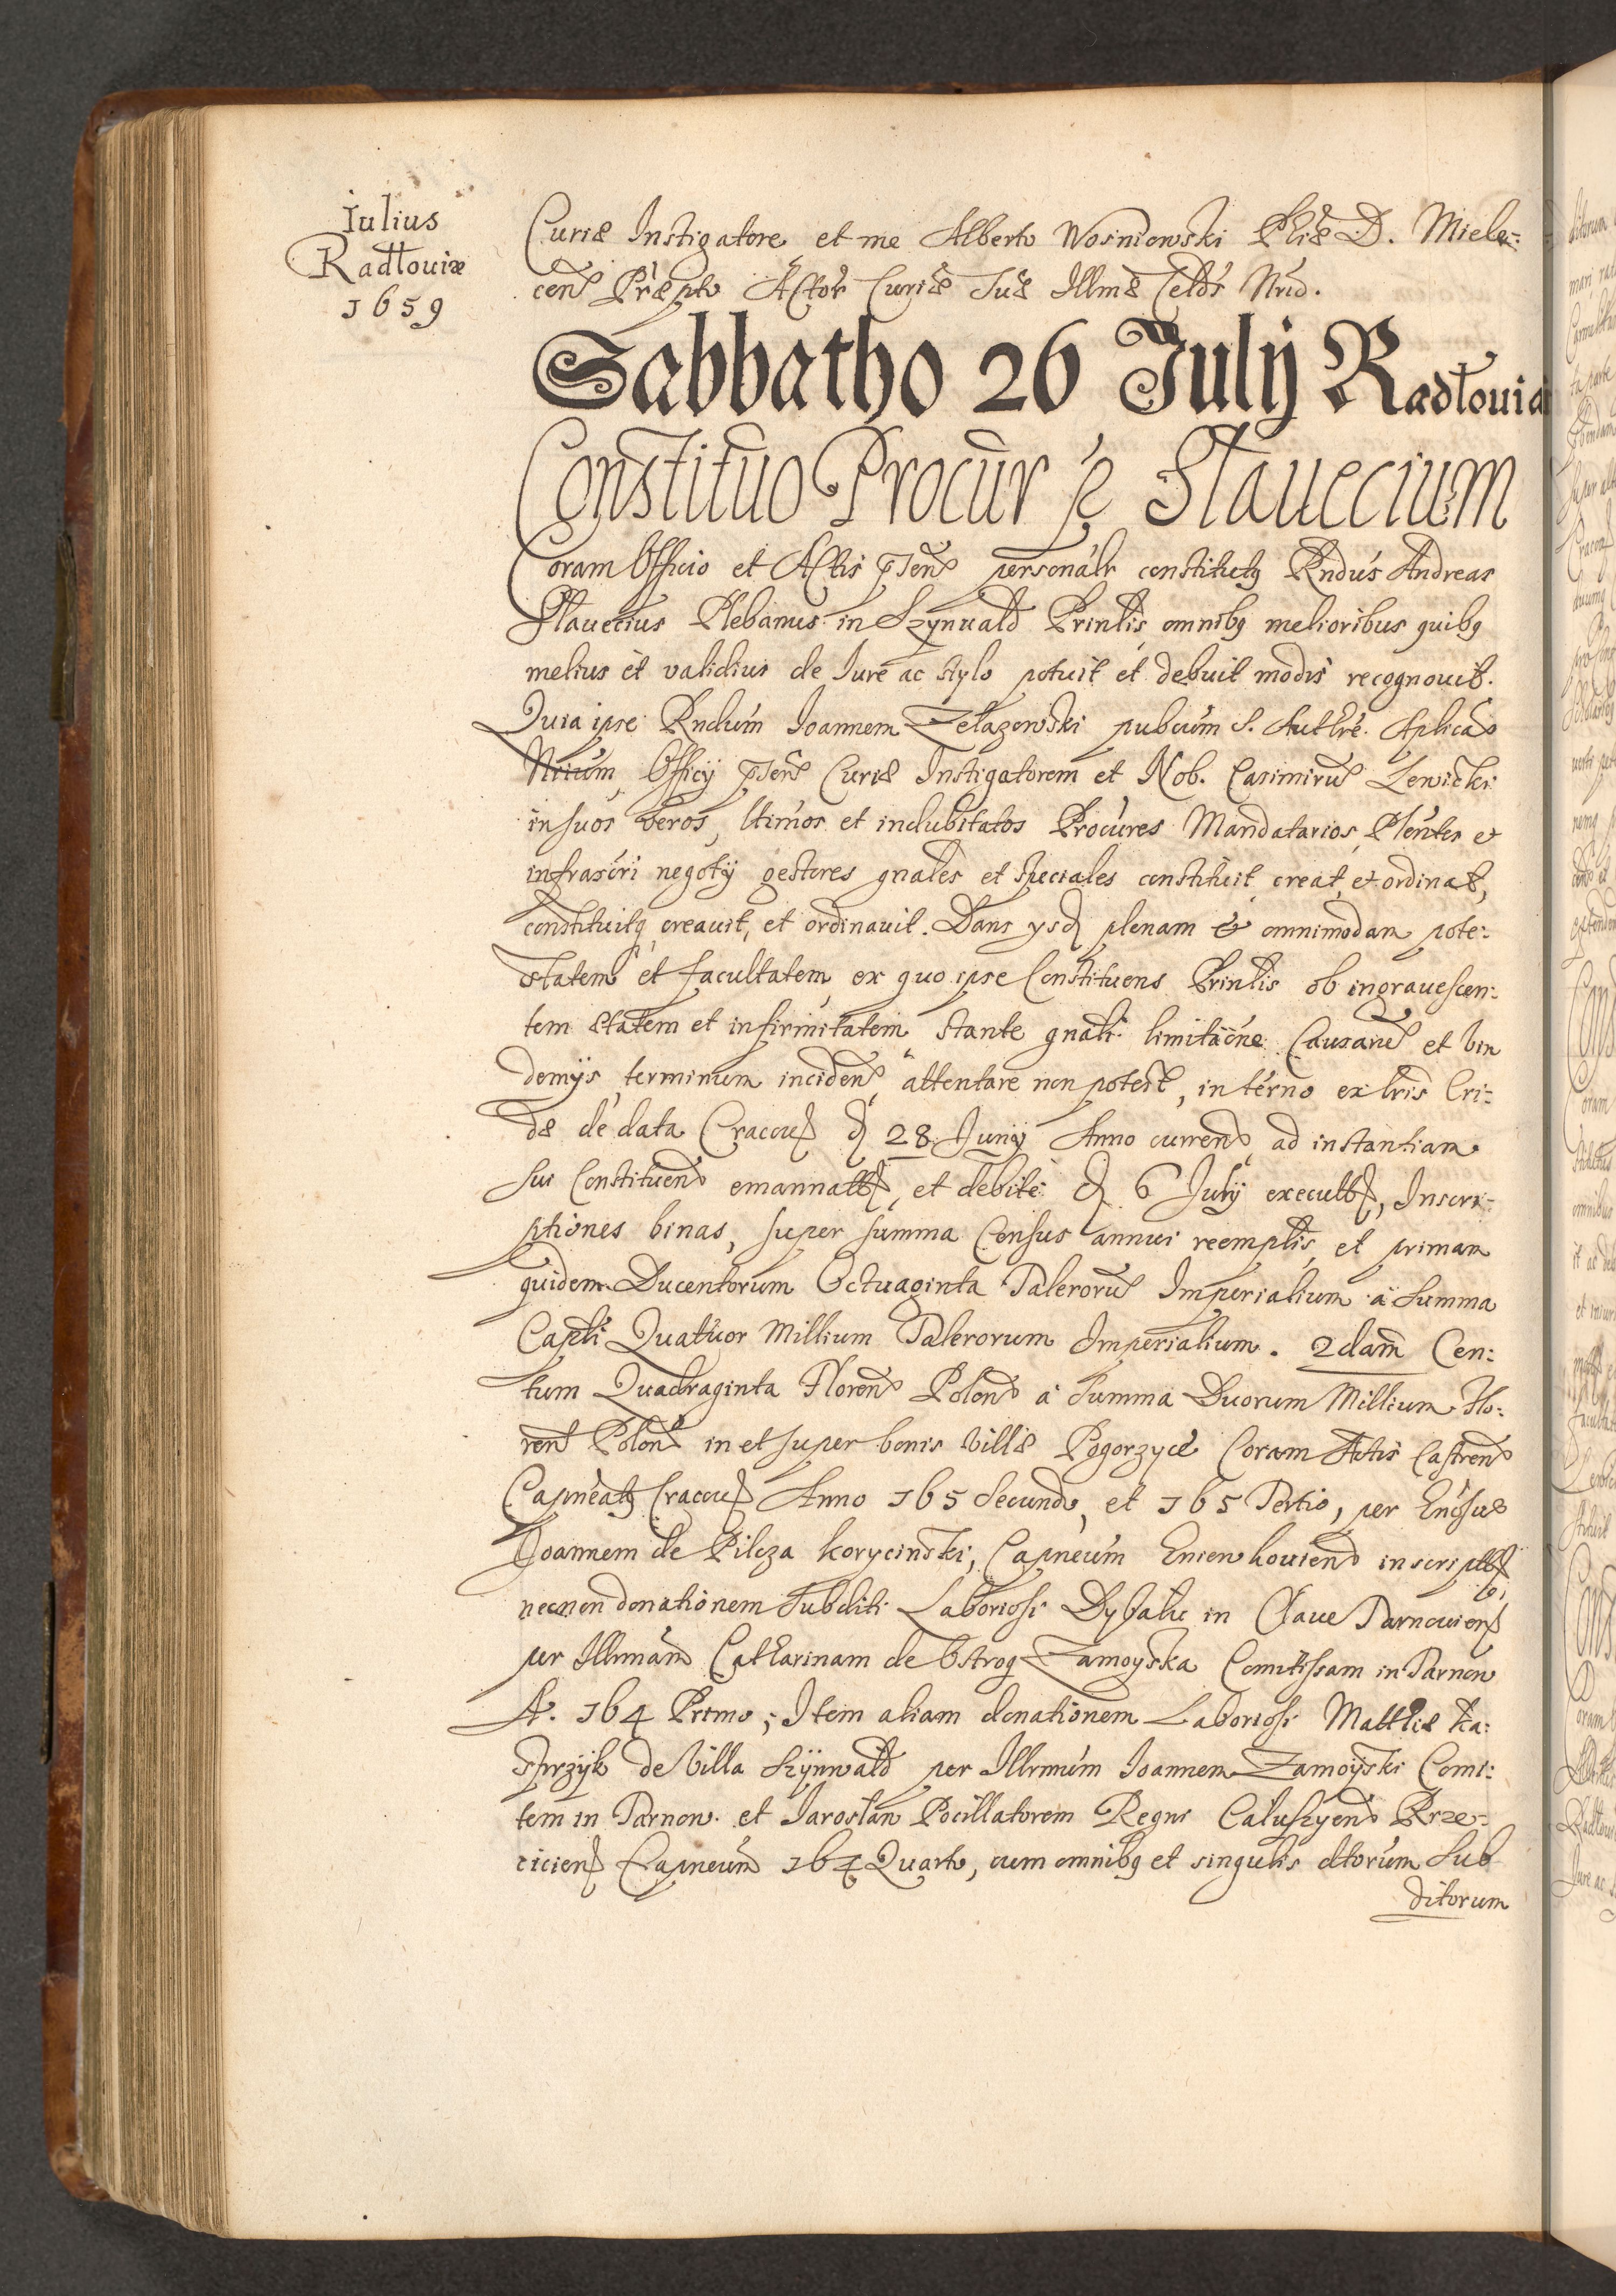 Iulius
Radłouiæ
1659
Curiæ Instigatore et me Alberto Wosniowski Phiæ D. Miele=
cen Præpto Actor Curiæ Suæ Illmæ Celds Nrid.
Sabbatho 26 Julij Radłouiæ
Constituo Procur p Slauecium
Coram Officio et Actis pnten personalr constitutq Rndus Andreas
Slauecius Plebanus in Szynuald Prinlis omnibq melioribus quibq
melius et validius de Iure ac stylo potuit et debuit modis recognouit.
Quia ipse Rndum Joannem Zelazowski pubcum S. Authre Aplica
Nrium, Officij pnten Curiæ Instigatorem et Nob. Casimiru Lewicki
in suos veros, ltimos et indubitatos Procures Mandatarios, Plentes et
infrascri negotij gestores gnales et speciales constituit creat, et ordinat,
constituitq creauit, et ordinauit. Dans ysd plenam et omnimodam pote=
statem et facultatem ex quo ipse Constituens Prinlis ob ingrauescen=
tem ætatem et infirmitatem stante gnali limitaöne Causaru et vin
demijs terminum inciden attentare non potest, in termo ex lris Cri=
dæ de data Cracou d 28 Junij Anno curren ad instantiam
sui Constituen emannattq, et debite d 6 Julij executtq, Inscri=
ptiones binas, super summa Census annui reemptlis et primam
quidem Ducentorum Octuaginta Taleroru Imperialium a summa
Caplti Quatuor Millium Talerorum Imperialium. 2dam Cen=
tum Quadraginta Floren Polon a summa Duorum Millium Flo=
ren Polon in et super bonis villæ Pogorzyce Coram Actis Castren
Capneatq Cracou Anno 165 Secundo, et 165 Tertio, per Gnosu
Joannem de Pilcza Korycinski, Capneum Gniewkouien inscriptt,
necnon donationem Subditi Laboriosi Dybalic in Claue Tarnouien
per Illrmam Catharinam de Ostrog Zamoyska Comitissam in Tarnow
A. 164 Primo; Item aliam donationem Laboriosi Matthiæ Ka=
sprzyk de Villa Szÿnwald per Illrmum Joannem Zamoÿski Comi=
tem in Tarnow. et Jaroslau Pocillatorem Regni Caluszyen Rrze=
cicien Capneum 164 Quarto, cum omnibq et singulis dtorum Sub
ditorum